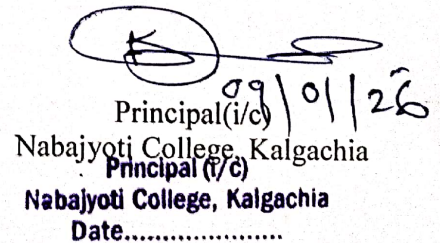 09/01/26
Principal(i/c)
Nabajyoti College, Kalgachia
Principal (I/C)
Nabajyoti College, Kalgachia
Date.....................